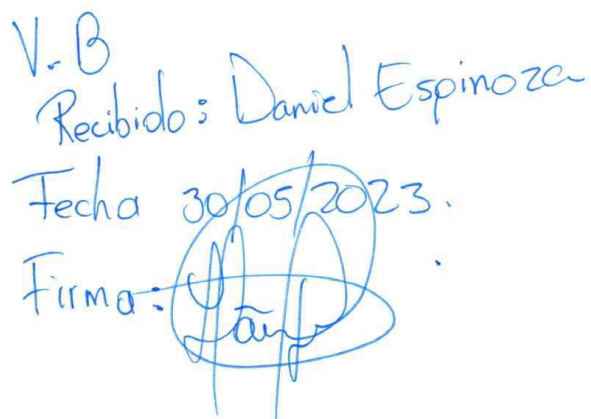 V.B
Recibido: Daniel Espinoza
Fecha 30/05/2023.
Firma: